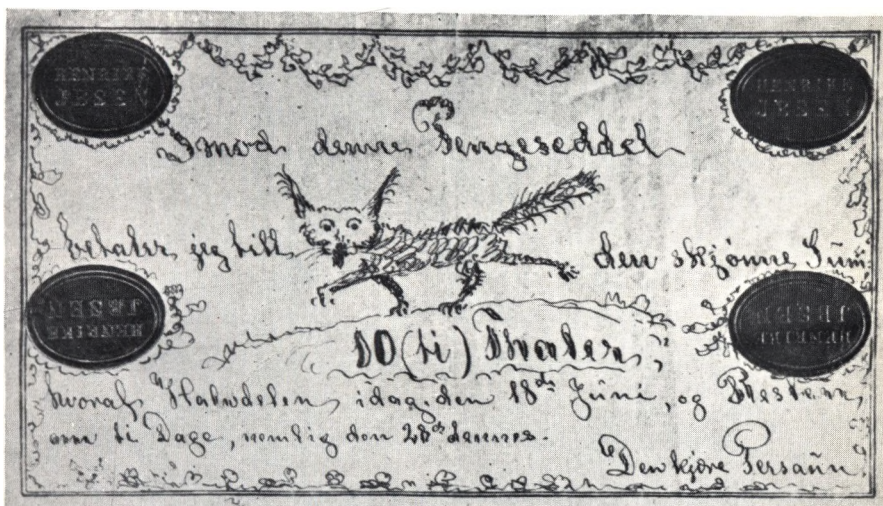 HENRIKE
IBSEN
HENRIKE
IBSEN
Imod denne Pengeseddel
betaler jeg till den skjønne Sum
HENRIKE
IBSEN
HENRIKE
IBSEN
10 (ti) Thaler,
hvoraf Halvdelen, idag, den 18de Juni, og Resten,
om ti Dage, nemlig den 28de dennes.
Den kjære Persaun